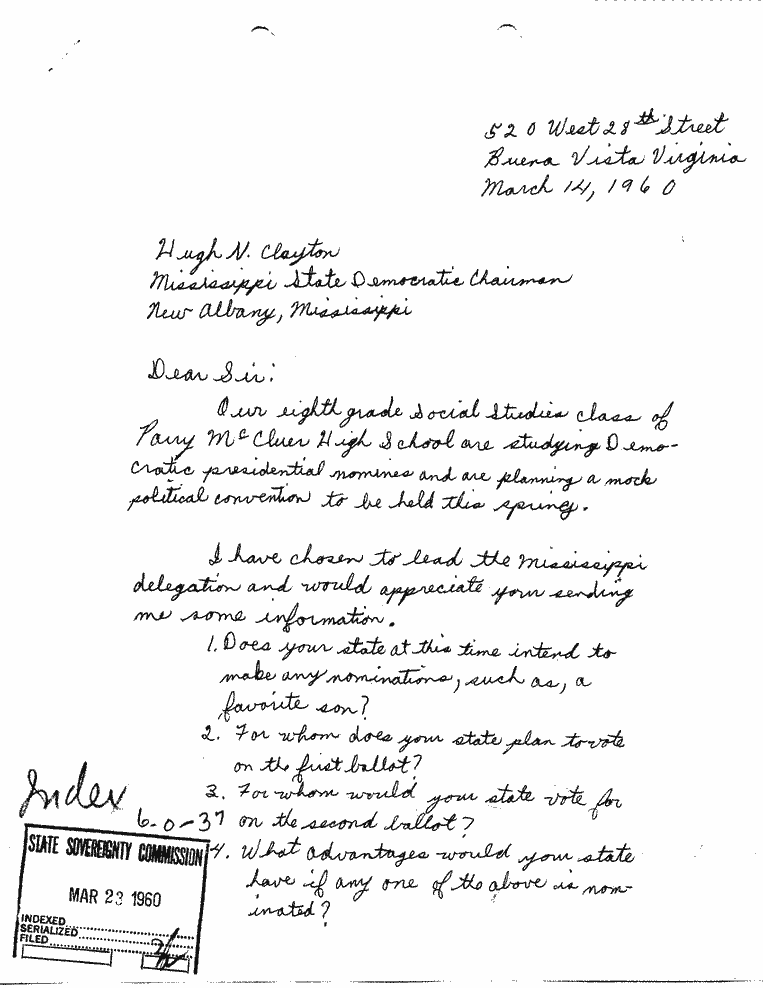 520 West 28th Street
Buena Vista Virginia
March 14, 1960
Hugh N. Clayton
Mississippi State Democratic Chairman
New Albany, Mississippi
Dear Sir:
Our eighth grade Social Studies class of
Parry McCluer High School are studying Demo-
cratic presidential nomines and are planning a mock
political convention to be held this spring.
I have chosen to lead the Mississippi
delegation and would appreciate your sending
me some information.
1. Does your state at this time intend to
make any nominations, such as, a
favorite son?
2. For whom does your state plan to vote
on the first ballot?
3. For whom would your state vote for
on the second ballot?
4. What advantages would your state
have if any one of the above is nom-
inated?
Index
6-0-37
STATE SOVEREIGNTY COMMISSION
MAR 23 1960
INDEXED
SERIALIZED
FILED